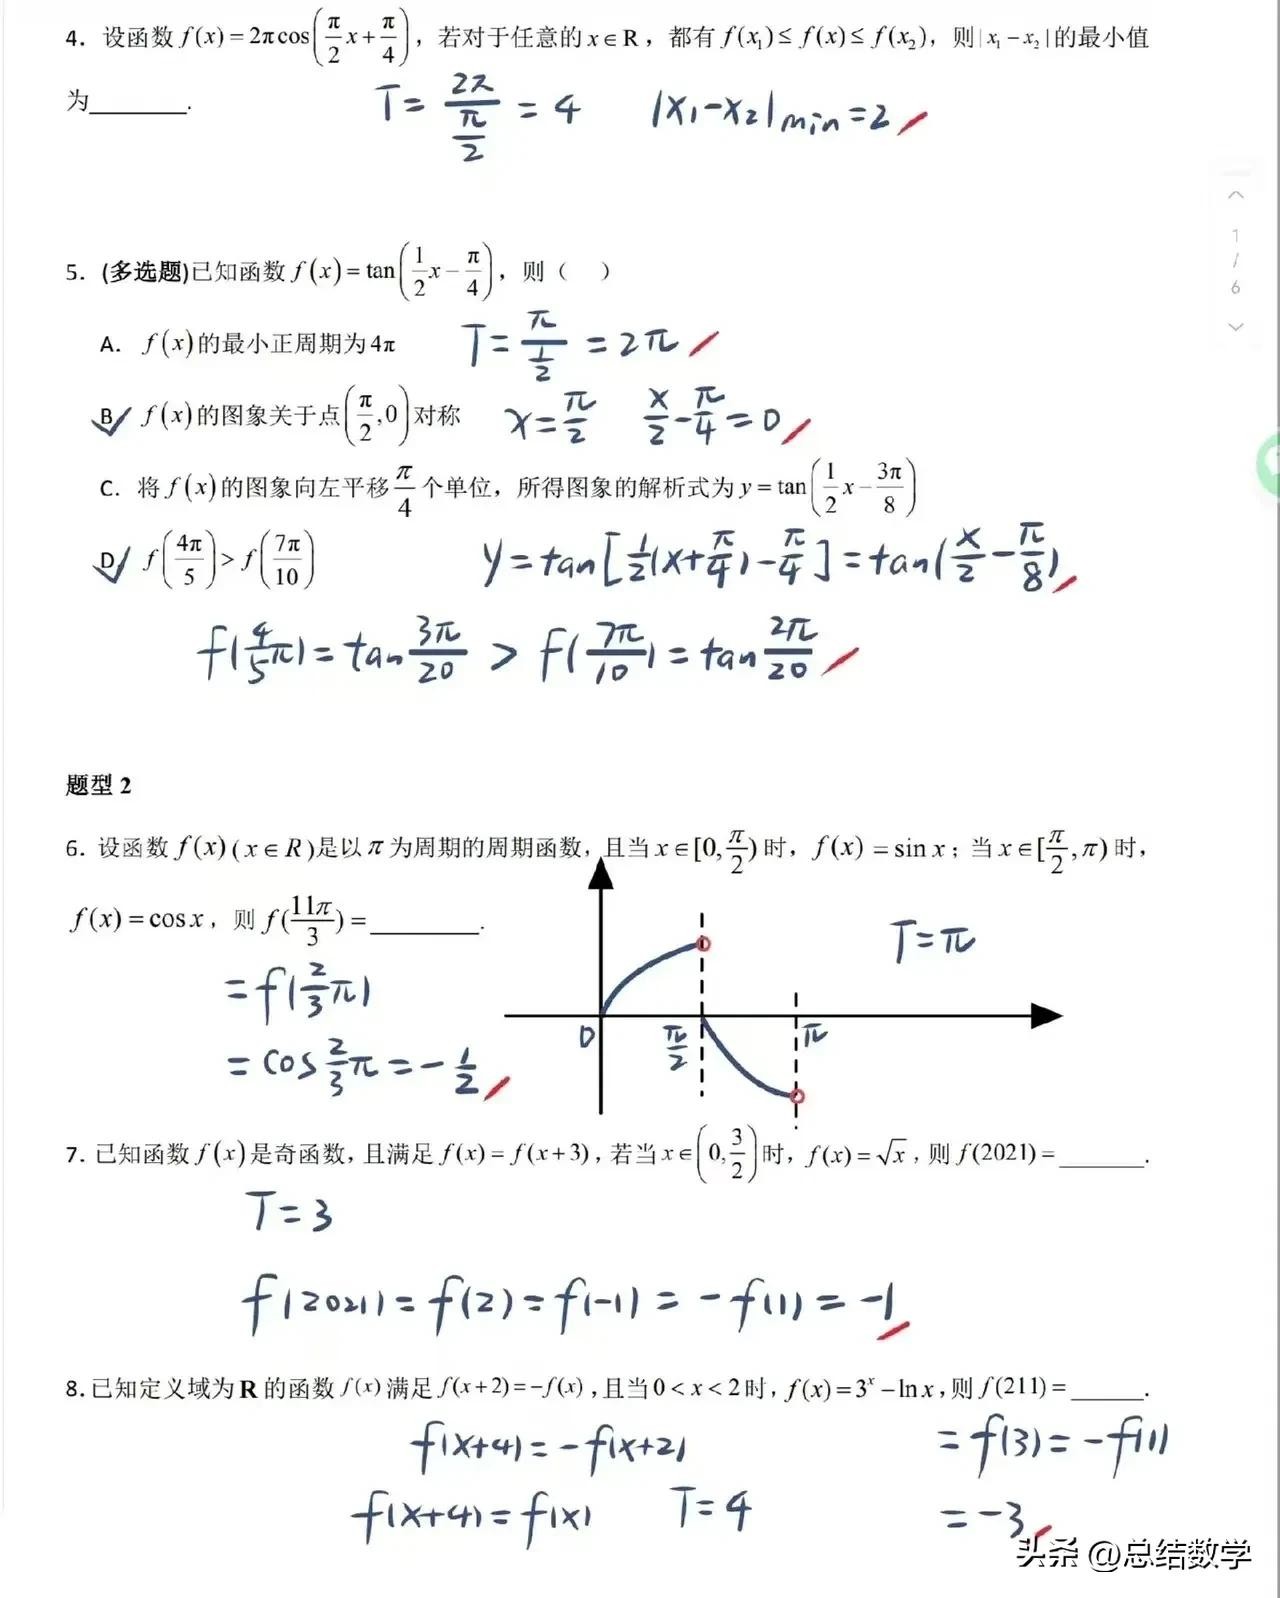 4. 设函数 f(x)=2πcos(π/2 x+π/4)，若对于任意的 x∈R，都有 f(x₁)≤f(x)≤f(x₂)，则|x₁-x₂|的最小值
为________.
T=2π/(π/2)=4 |x₁-x₂|min=2
5. (多选题)已知函数 f(x)=tan(1/2 x-π/4)，则（ ）
A. f(x)的最小正周期为4π T=π/(1/2)=2π
B. f(x)的图象关于点(π/2,0)对称 x=π/2 x/2-π/4=0
C. 将 f(x)的图象向左平移π/4个单位，所得图象的解析式为 y=tan(1/2 x-3π/8)
D. f(4π/5)>f(7π/10) y=tan[1/2(x+π/4)-π/4]=tan(x/2-π/8)
f(4/5 π)=tan 3π/20 > f(7π/10)=tan 2π/20
题型 2
6. 设函数 f(x)(x∈R)是以π为周期的周期函数，且当 x∈[0,π/2)时，f(x)=sin x；当 x∈[π/2,π)时，
f(x)=cos x，则 f(11π/3)=________.
T=π
=f(2/3 π)
0 π/2 π
=cos 2/3 π=-1/2
7. 已知函数 f(x)是奇函数，且满足 f(x)=f(x+3)，若当 x∈(0,3/2)时，f(x)=√x，则 f(2021)=_______.
T=3
f(2021)=f(2)=f(-1)=-f(1)=-1
8. 已知定义域为R的函数 f(x)满足 f(x+2)=-f(x)，且当0<x<2时，f(x)=3ˣ-ln x，则 f(211)=______.
f(x+4)=-f(x+2) =f(3)=-f(1)
f(x+4)=f(x) T=4 =-3
头条 @总结数学
1
/
6